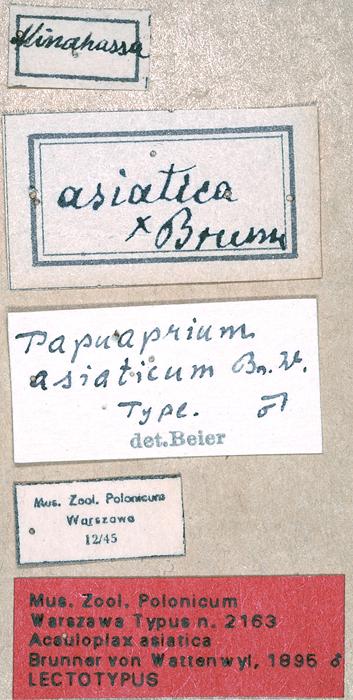 Minahassa
asiatica
x Brunn
Papuaprium
asiaticum Br. W.
Type. ♂
det. Beier
Mus. Zool. Polonicum
Warszawa
12/45
Mus. Zool. Polonicum
Warszawa Typus n. 2163
Acauloplax asiatica
Brunner von Wattenwyl, 1895 ♂
LECTOTYPUS